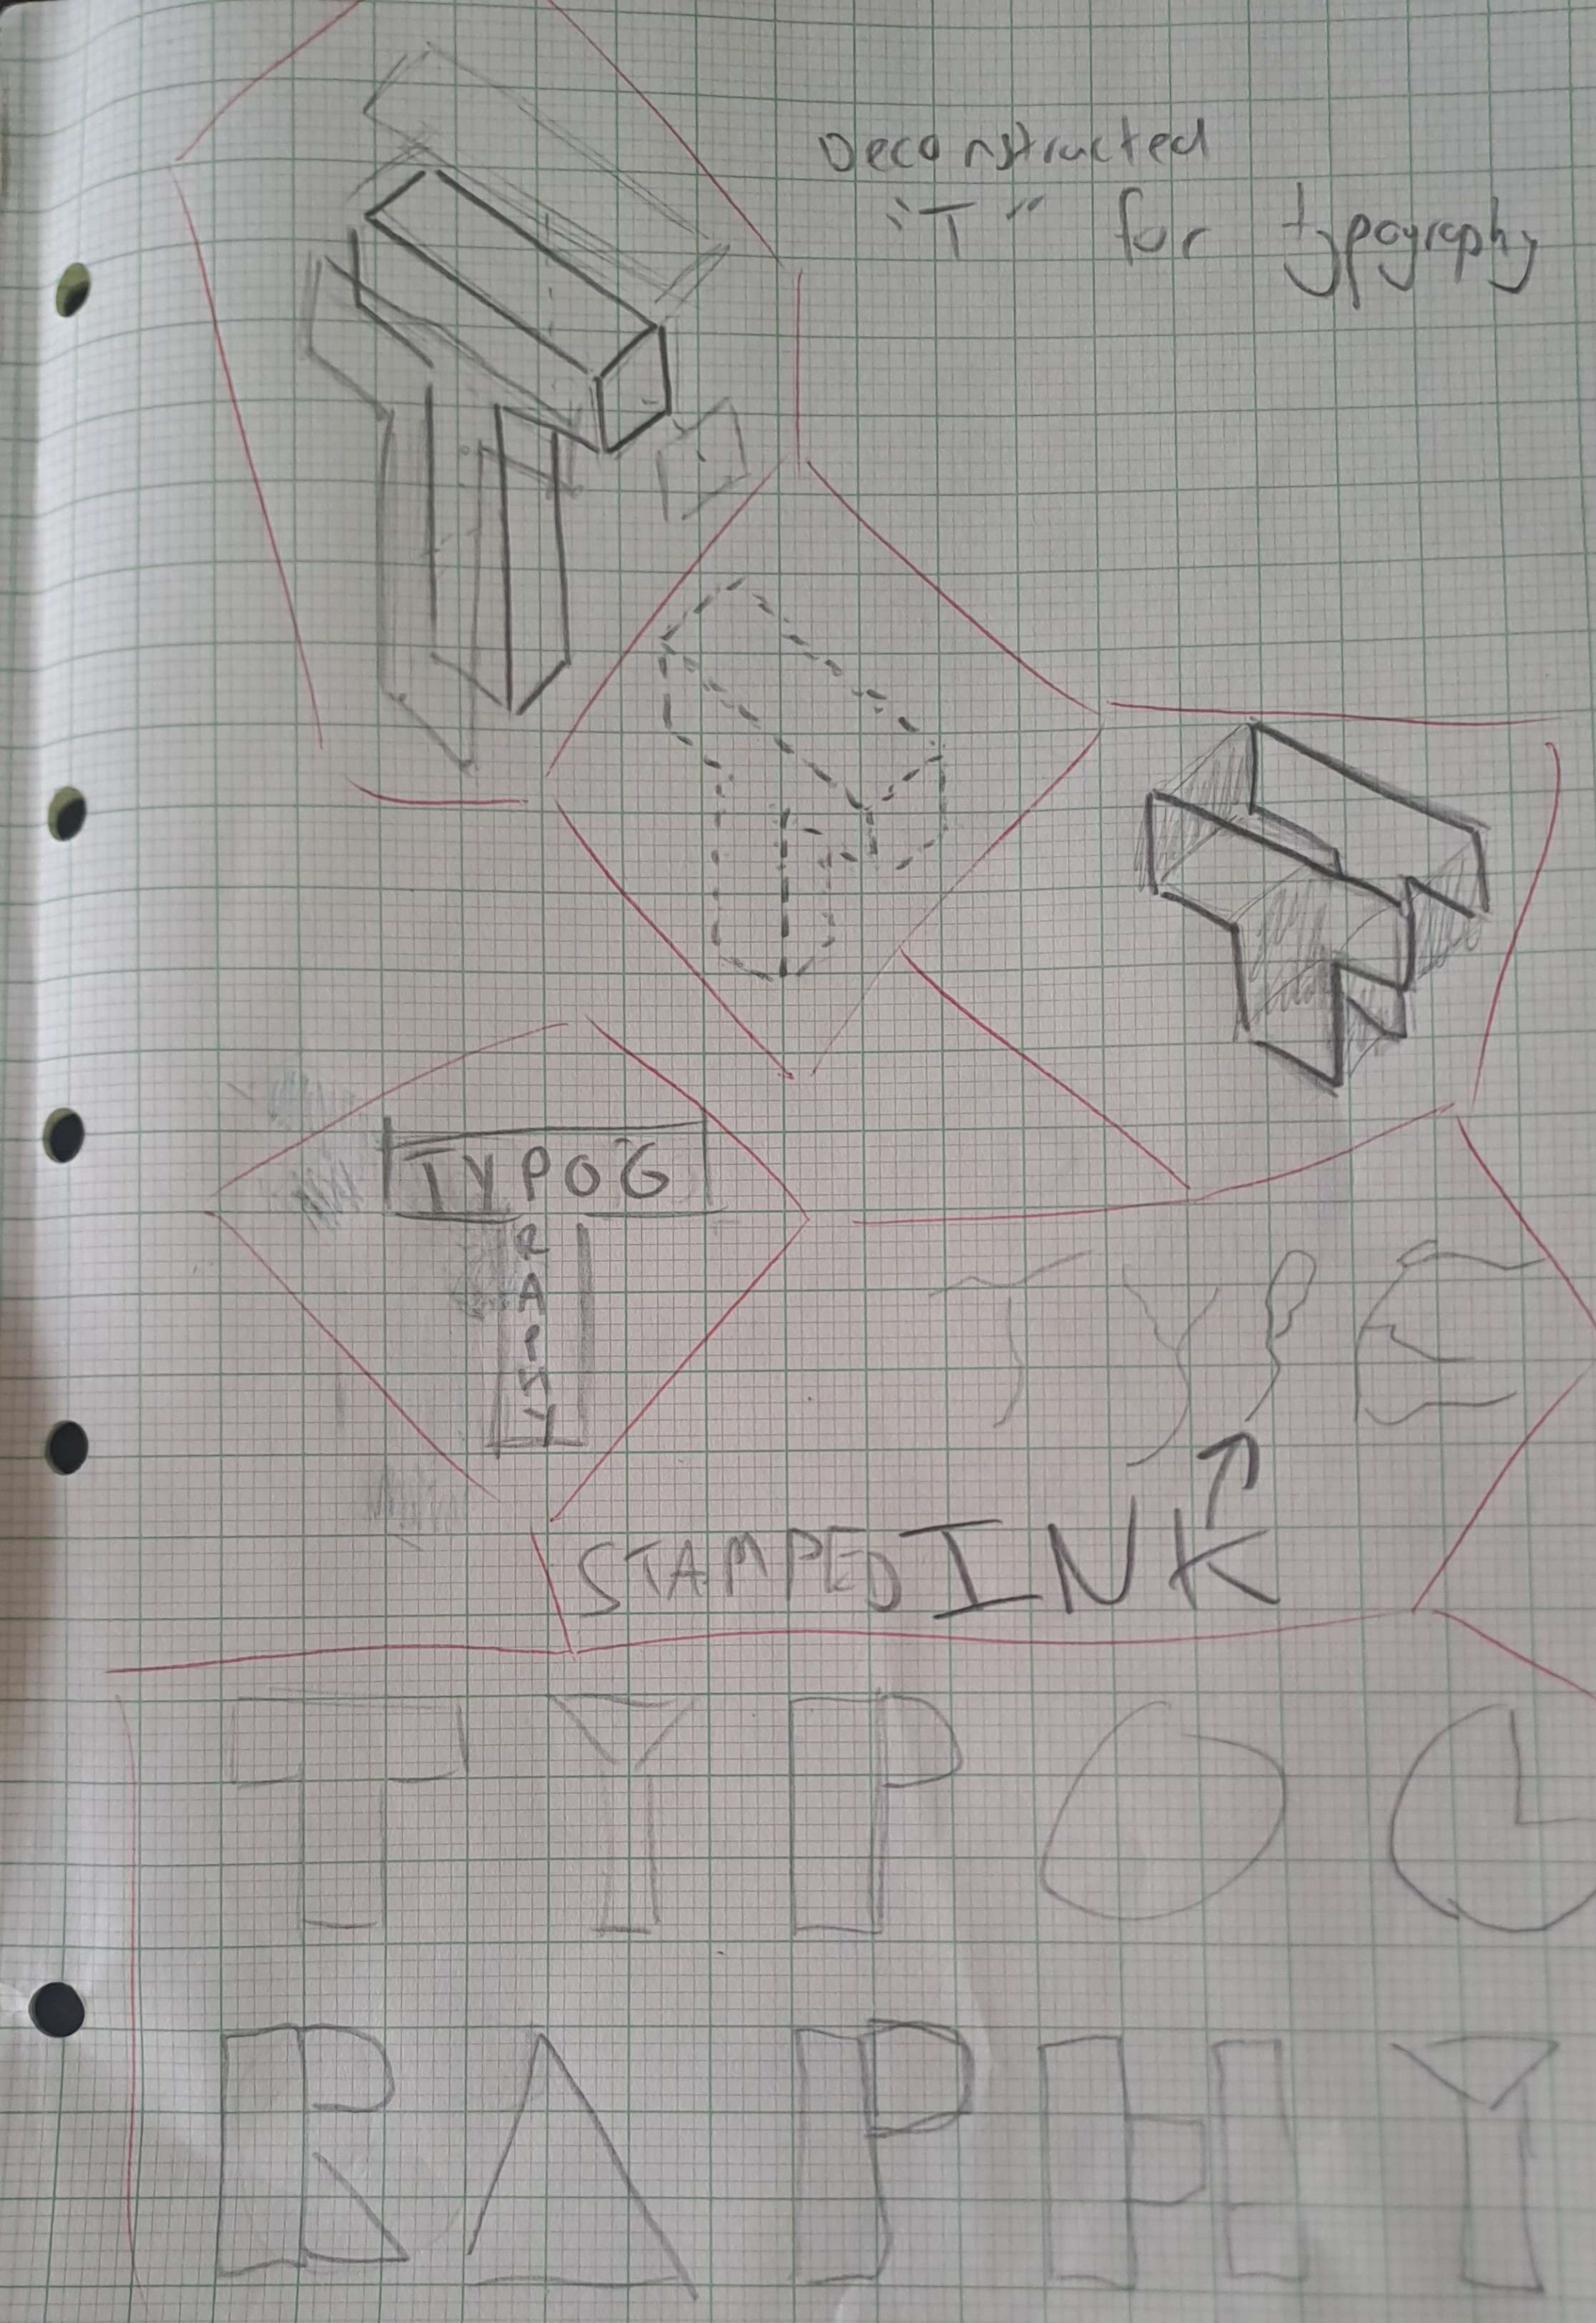 Deconstructed
"T" for typography
TYPOG
R
A
P
H
Y
TYPE
STAMPED INK
TYPOG
RAPHY